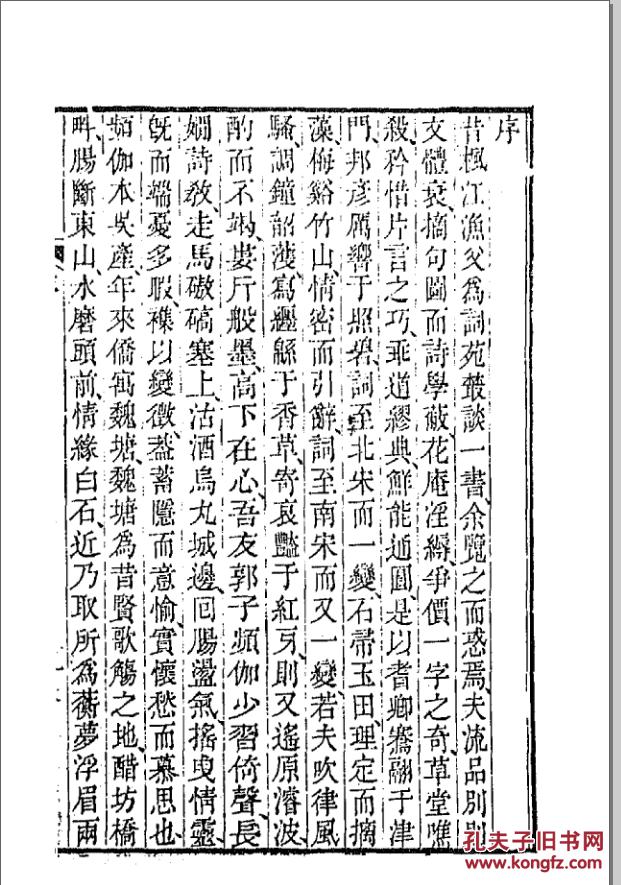 序
昔楓江漁父為詞苑叢談一書余覽之而惑焉夫流品別則
文體衰摘句圖而詩學蔽花庵淫縟爭價一字之奇草堂噍
殺矜惜片言之巧乖道繆典鮮能通圓是以耆卿騫翮于津
門邦彥厲響于照碧詞至北宋而一變石帚玉田理定而摛
藻梅谿竹山情密而引辭詞至南宋而又一變若夫吹律風
騷調鐘韶濩寫纒緜于香草寄哀豔于紅牙則又遙原濬波
酌而不竭婁斤般墨高下在心吾友郭子頻伽少習倚聲長
嫻詩教走馬磝碻塞上沽酒烏丸城邊囘腸盪氣搖曳情靈
旣而端憂多暇襍以變徵葢蓄隱而意愉實懷愁而慕思也
頻伽本吳產年來僑寓魏塘魏塘為昔賢歌觴之地醋坊橋
畔腸斷東山水磨頭前情緣白石近乃取所為蘅夢浮眉兩
孔夫子旧书网
www.kongfz.com